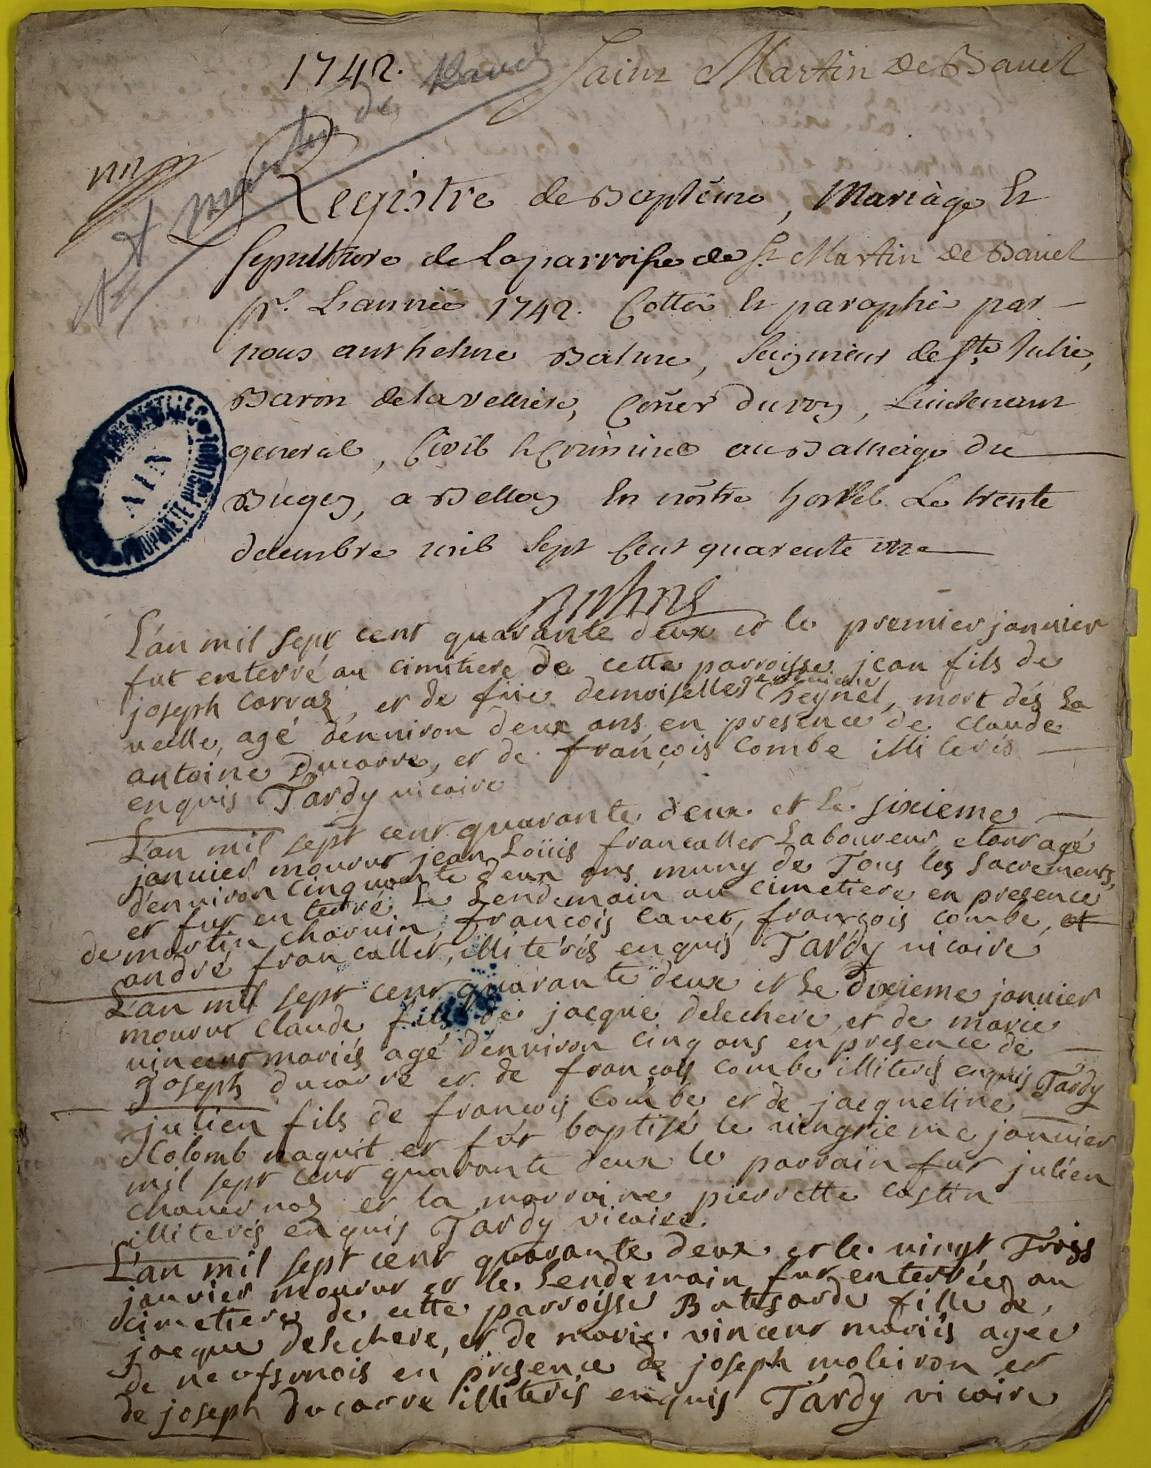 1742. Saint Martin de Bavel
St martin de Bavel
Registre de Baptême, Mariage Et
sepulture de La parroisse de St Martin de Bavel
pr. L'année 1742. Cotté Et paraphé par
nous anthelme Balme, Seigneur de Ste Julie,
Baron de la velliere, Coner du roy, Lieutenant
general, Civil & Criminel au Balliage du
Bugey, a Belley En nôtre hostel Le trente
decembre mil sept Cent quarente une
AIN
PROPRIÉTÉ
L'an mil sept cent quarante deux et le premier janvier
fut enterré au cimitiere de cette parroisse jean fils de
joseph Carraz, et de füe demoiselle Cheynel, mort dés La
veille, agé d'environ deux ans en presence de Claude
antoine Ducarre, et de françois Combe illiterés
enquis Tardy vicaire
L'an mil sept cent quarante deux et Le sixieme
janvier mourut jean Loüis francallet Laboureur, etant agé
d'environ cinquante deux ans muny de Tous les Sacrements,
et fut enterré Le Lendemain au cimetiere en presence
de martin Charvin, françois Canet, françois Combe, et
andré francallet, illiterés enquis Tardy vicaire
L'an mil sept cent quarante deux et Le dixieme janvier
mourut Claude fils de jacque delechere, et de marie
vincent mariés agé d'environ cinq ans en presence de
joseph ducarre et de françois Combe illiterés enquis Tardy
julien fils de françois Combe et de jacqueline
Colomb naquit et fut baptisé le vingtieme janvier
mil sept cent quarante deux le parrain fut julien
Chavernoz et la marraine pierrette Costin
illiterés enquis Tardy vicaire.
L'an mil sept cent quarante deux et le vingt Trois
janvier mourut et le Lendemain fut enterrée au
cimetiere de cette parroisse Baltesarde fille de
jacque delechere, et de marie vincent mariés agée
de neufs mois en presence de joseph moleiron et
de joseph ducarre illiterés enquis Tardy vicaire